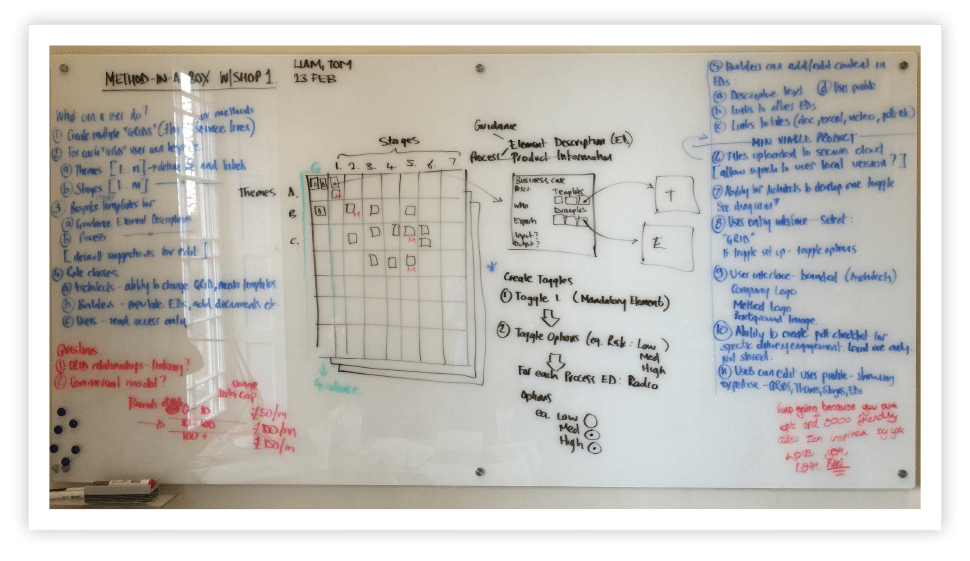 METHOD-IN-A-BOX W/SHOP 1.
LIAM, TOM
23 FEB
What can a user do?
① Create multiple "GRIDS"
② For each "GRID" user can
ⓐ Themes [1..n] → and labels
ⓑ Stages [1..m]
③ Bespoke templates for
ⓐ Guidance Element Description
ⓑ Process
[default suggestions for edit]
④ Role classes.
ⓐ Architects - ability to change GRID, templates
ⓑ Builders - populate EDs, add documents etc.
ⓒ Users - read access only
Questions
① GRID relationships -
② Commercial model?
Bands
0 - 10
10 - 100
100 +
Usage
Data cap
£50/m
£100/m
£150/m
Stages
G
1. 2. 3. 4. 5. 6. 7
Themes
A.
B
C.
Guidance
Guidance
Process
Element Description (ED)
Product Information
Business case
Desc:
Who
Expects
Input?
Output?
Templates
Examples
T
E
*
Create Toggles
① Toggle 1 (Mandatory Element)
② Toggle Options (eg. Risk: Low)
Med
High
For each Process ED: Radio
Options
eg. Low
Med
High
⑤ Builders can add/edit content in
EDs:
ⓐ Descriptive text
ⓓ User profile
ⓑ Links to other EDs
ⓒ Links to files (doc, excel, video, pdf etc.)
MIN VIABLE PRODUCT
⑥ Files uploaded to secure cloud
[allow upload to user local version?]
⑦ Ability for Architects to develop one toggle
See diagram*
⑧ User entry interface - select:
"GRIDS"
If toggle set up - toggle options
⑨ User interface - branded (Architect)
Company Logo
Method Logo
Background Image
⑩ Ability to create pdf checklist for
specific delivery engagement. Local use only.
Not stored.
⑪ Users can edit user profile - showing
expertise - GRIDS, Themes, Stages, EDs
Keep going because you are
epic and sooo friendly
also I am inspired by you
Love you,
Love